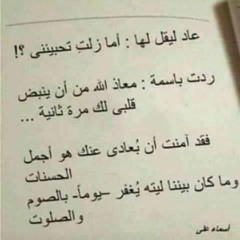 عاد ليقل لها : أما زلتِ تحبينني ؟!
ردت باسمة : معاذ الله من أن ينبض
قلبي لك مرة ثانية ...
فقد آمنت أن بُعادى عنك هو أجمل
الحسنات
وما كان بيننا ليته يُغفر –يوماً- بالصوم
والصلوت
أسماء